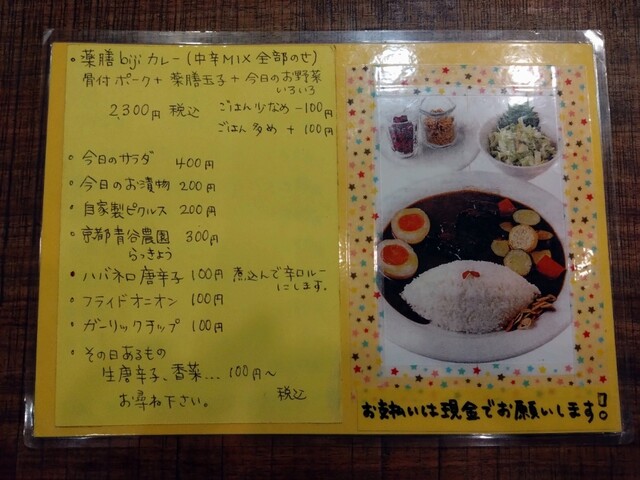 ・薬膳bijiカレー(中辛MIX全部のせ)
骨付ポーク+薬膳玉子+今日のお野菜
いろいろ
2,300円 税込 ごはん少なめ-100円
ごはん多め +100円
・今日のサラダ 400円
・今日のお漬物 200円
・自家製ピクルス 200円
・京都青谷農園 300円
らっきょう
・ハバネロ唐辛子 100円 煮込んで辛口ルー
にします。
・フライドオニオン 100円
・ガーリックチップ 100円
・その日あるもの
生唐辛子、香菜... 100円～
お尋ね下さい。 税込
お支払いは現金でお願いします!